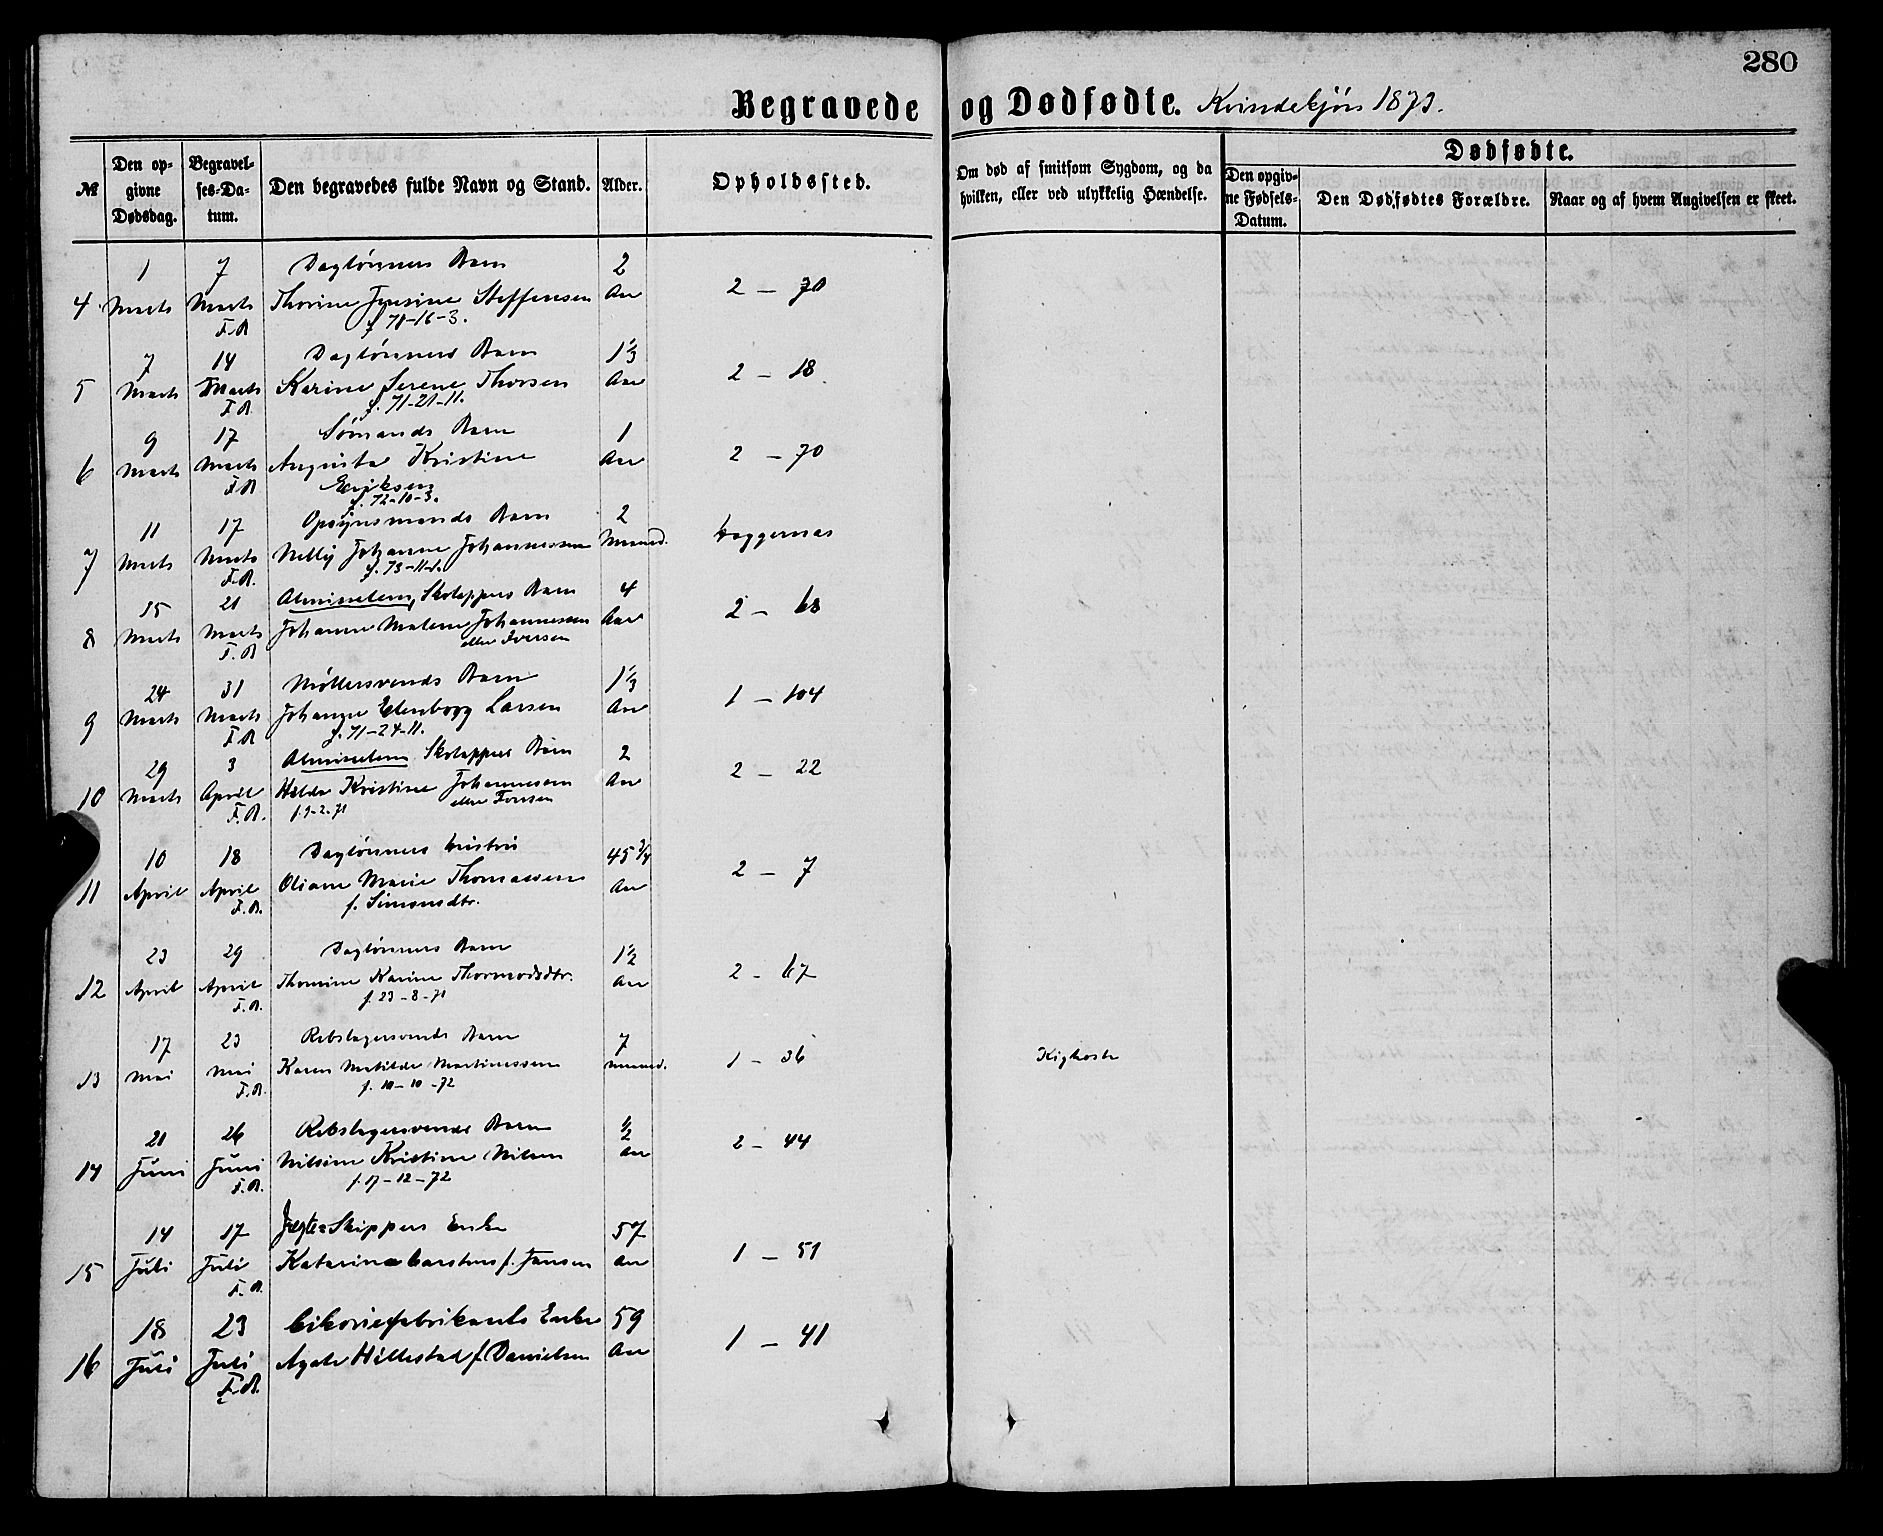 280
Begravede og Dødfødte. Kvindekjøn 1873.
№ Den opgivne Dødsdag. Begravelses-Datum. Den begravedes fulde Navn og Stand. Alder. Opholdssted. Om død af smitsom Sygdom, og da hvilken, eller ved ulykkelig Hændelse. Dødfødte.
Den opgivne Fødsels-Datum. Den Dødfødtes Forældre. Naar og af hvem Angivelsen er skeet.
1 7 Daglønners Barn 2
4 Marts Marts Thorine Steffensen Aar 2 – 70
F.R f. 70-16-3.
7 14 Daglønners Barn 1⅓
5 Marts Marts Karine Serene Thorsen Aar 2 – 18
F.R f. 71-21-11.
9 17 Sømands Barn 1
6 Marts Marts Augusta Kristine Aar 2 – 70
F.R Eriksen
f. 72-10-3.
11 17 Opsynsmands Barn 2
7 Marts Marts Nelly Johanne Johannessen Maaned.
F.R. f. 73-11-1.
15 21 Almisselem, Skolappers Barn 4
8 Marts Marts Johanne Malene Johannessen Aar 2 – 68
F.R eller Iversen
24 31 Møllersvends Barn 1⅓
9 Marts Marts Johanne Elenborg Larsen Aar 1 – 104
F.R f. 71-24-11.
29 3 Almisselem Skolappers Barn 2
10 Marts April Hilda Kristine Johannessen Aar 2 – 22
F.R. f. 9-2-71 eller Iversen
10 18 Daglønners Hustru 45 3/4
11 April April Oliane Marie Thomassen Aar 2 – 7
F.R. f. Simonsdtr.
23 29 Daglønners Barn 1½
12 April April Thomine Karine Thormodsdtr. Aar 2 – 67
F.R. f. 23-8-71
17 23 Rebslagersvends Barn 7
13 Mai Mai Karen Matilde Martinussen Maaned. 1 – 36 Kighoste
F.R. f. 10-10-72
21 26 Rebslagersvends Barn ½
14 Juni Juni Nilsine Kristine Nilsen Aar 2 – 44
F.R. f. 17-12-72
14 17 Jægte-Skippers Enke 57
15 Juli Juli Katarina Carstens f. Jansen Aar 1 – 51
F.R.
18 23 Cikoriefabrikants Enke 59
16 Juli Juli Agate Hillestad f. Danielsen Aar 1 – 41
F.R.